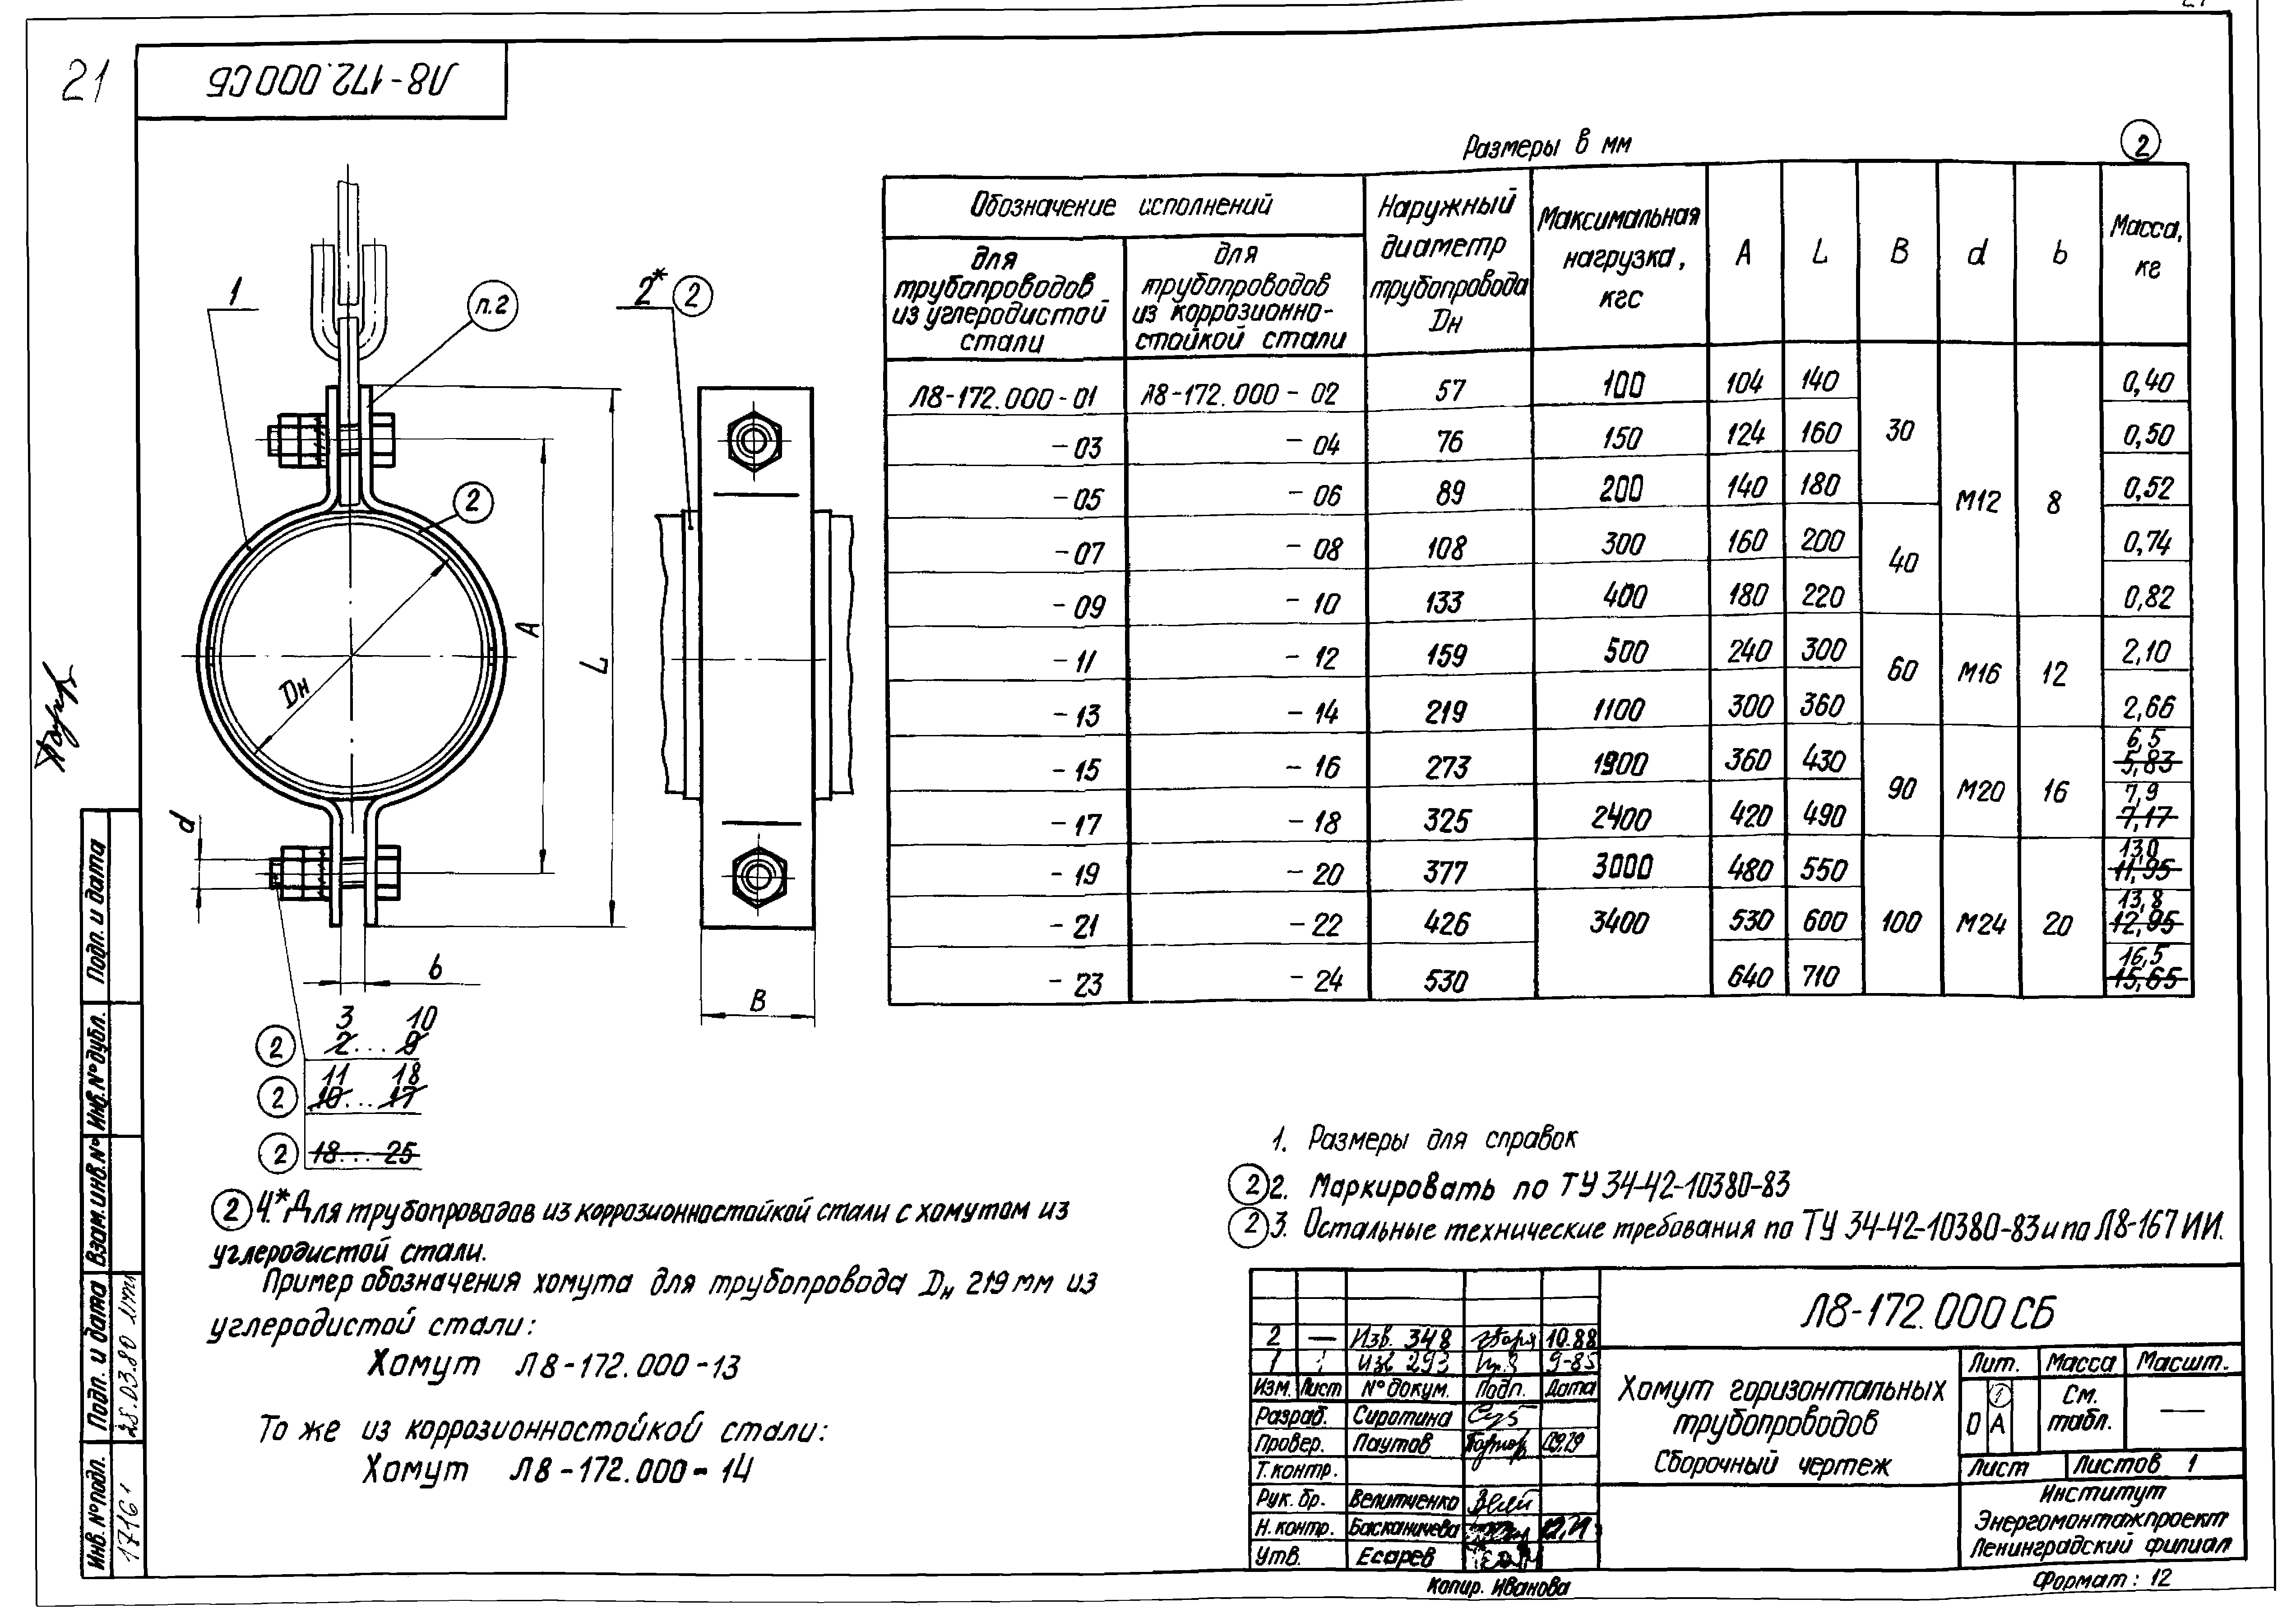 21
Л8-172.000 СБ
1
п.2
2* 2
2
А
L
Dн
d
b
В
3 10
2 2...9
11 18
2 10...17
2 18...25
Размеры в мм
2
Обозначение исполнений
для трубопроводов из углеродистой стали
для трубопроводов из коррозионно-стойкой стали
Наружный диаметр трубопровода Dн
Максимальная нагрузка, кгс
А
L
В
d
b
Масса, кг
Л8-172.000-01 Л8-172.000-02 57 100 104 140 30 М12 8 0,40
-03 -04 76 150 124 160 0,50
-05 -06 89 200 140 180 0,52
-07 -08 108 300 160 200 40 0,74
-09 -10 133 400 180 220 0,82
-11 -12 159 500 240 300 60 М16 12 2,10
-13 -14 219 1100 300 360 2,66
-15 -16 273 1900 360 430 90 М20 16 6,5 5,83
-17 -18 325 2400 420 490 7,9 7,17
-19 -20 377 3000 480 550 100 М24 20 13,0 11,95
-21 -22 426 3400 530 600 13,8 12,95
-23 -24 530 640 710 16,5 15,65
1. Размеры для справок
2 2. Маркировать по ТУ 34-42-10380-83
2 3. Остальные технические требования по ТУ 34-42-10380-83 и по Л8-167 ИИ.
2 4.* Для трубопроводов из коррозионностойкой стали с хомутом из
углеродистой стали.
Пример обозначения хомута для трубопровода Dн 219 мм из
углеродистой стали:
Хомут Л8-172.000-13
То же из коррозионностойкой стали:
Хомут Л8-172.000-14
Подп. и дата
Инв. № дубл.
Взам. инв. №
Подп. и дата
25.03.80
Инв. № подл.
17161
2 — Изв. 348 10.88
1 1 Изв 293 9-85
Изм. Лист № докум. Подп. Дата
Разраб. Сиротина
Провер. Паутов
Т. контр.
Рук. бр. Велитченко
Н. контр. Басканичева
Утв. Есарев
Л8-172.000 СБ
Хомут горизонтальных
трубопроводов
Сборочный чертеж
Лит. Масса Масшт.
О А 1 См. табл. —
Лист Листов 1
Институт
Энергомонтажпроект
Ленинградский филиал
Копир. Иванова
Формат: 12